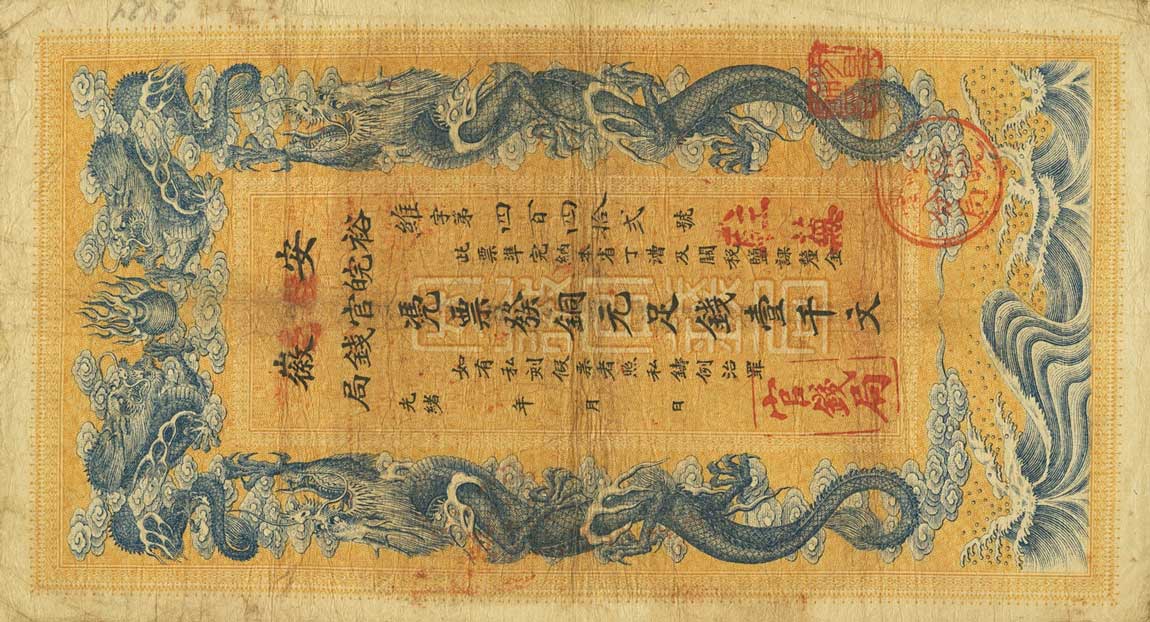 安徽
裕皖官錢局
維字第四百四拾弍號
此票準完納本省丁漕及關稅鹽課釐金
憑票發銅元足錢壹千文
如有私刻假票者照私鑄例治罪
光緒 年 月 日
官錢局